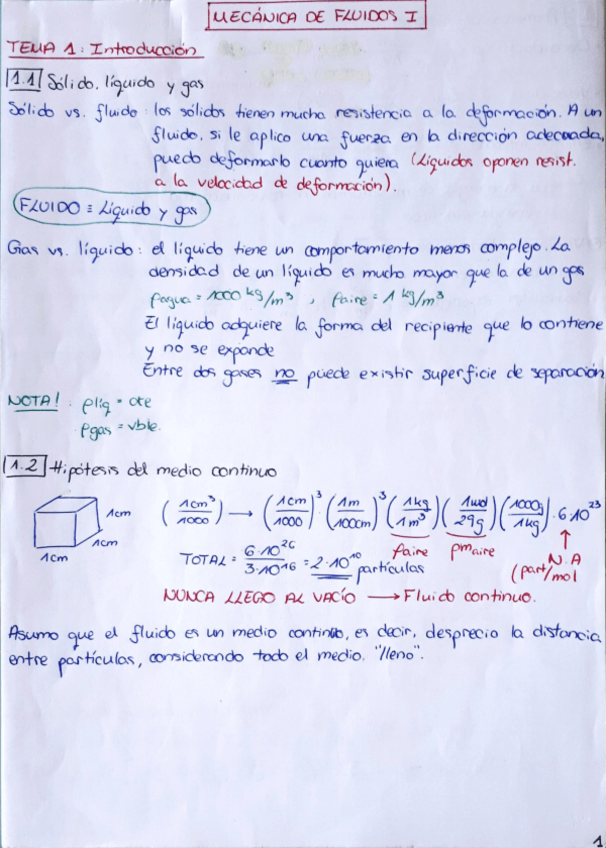 MECÁNICA DE FLUIDOS I
TEMA 1: Introducción
1.1 Sólido, líquido y gas
Sólido vs. fluido: los sólidos tienen mucha resistencia a la deformación. A un
fluido, si le aplico una fuerza en la dirección adecuada,
puedo deformarlo cuanto quiera (Líquidos oponen resist.
a la velocidad de deformación).
FLUIDO ≡ Líquido y gas
Gas vs. líquido: el líquido tiene un comportamiento menos complejo. La
densidad de un líquido es mucho mayor que la de un gas
ρagua = 1000 kg/m³ , ρaire = 1 kg/m³
El líquido adquiere la forma del recipiente que lo contiene
y no se expande
Entre dos gases no puede existir superficie de separación
NOTA! : ρliq = cte
ρgas = vble.
1.2 Hipótesis del medio continuo
1cm 1cm 1cm
(1cm³/1000) → (1cm/1000)³ · (1m/100cm)³ (1kg/1m³) (1mol/29g) (1000g/1kg) · 6·10²³
ρaire pmaire N.A (part/mol
TOTAL = 6·10²⁶/3·10¹⁶ = 2·10¹⁰ partículas
NUNCA LLEGO AL VACÍO → Fluido continuo.
Asumo que el fluido es un medio continuo, es decir, desprecio la distancia
entre partículas, considerando todo el medio "lleno".
1